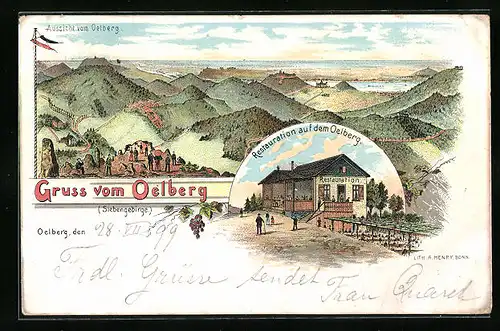 Aussicht vom Oelberg
Restauration auf dem Oelberg.
Restauration
Gruss vom Oelberg
(Siebengebirge.)
Oelberg, den 28. VIII 99
LITH. A. HENRY, BONN
Frdl. Grüsse sendet
Frau